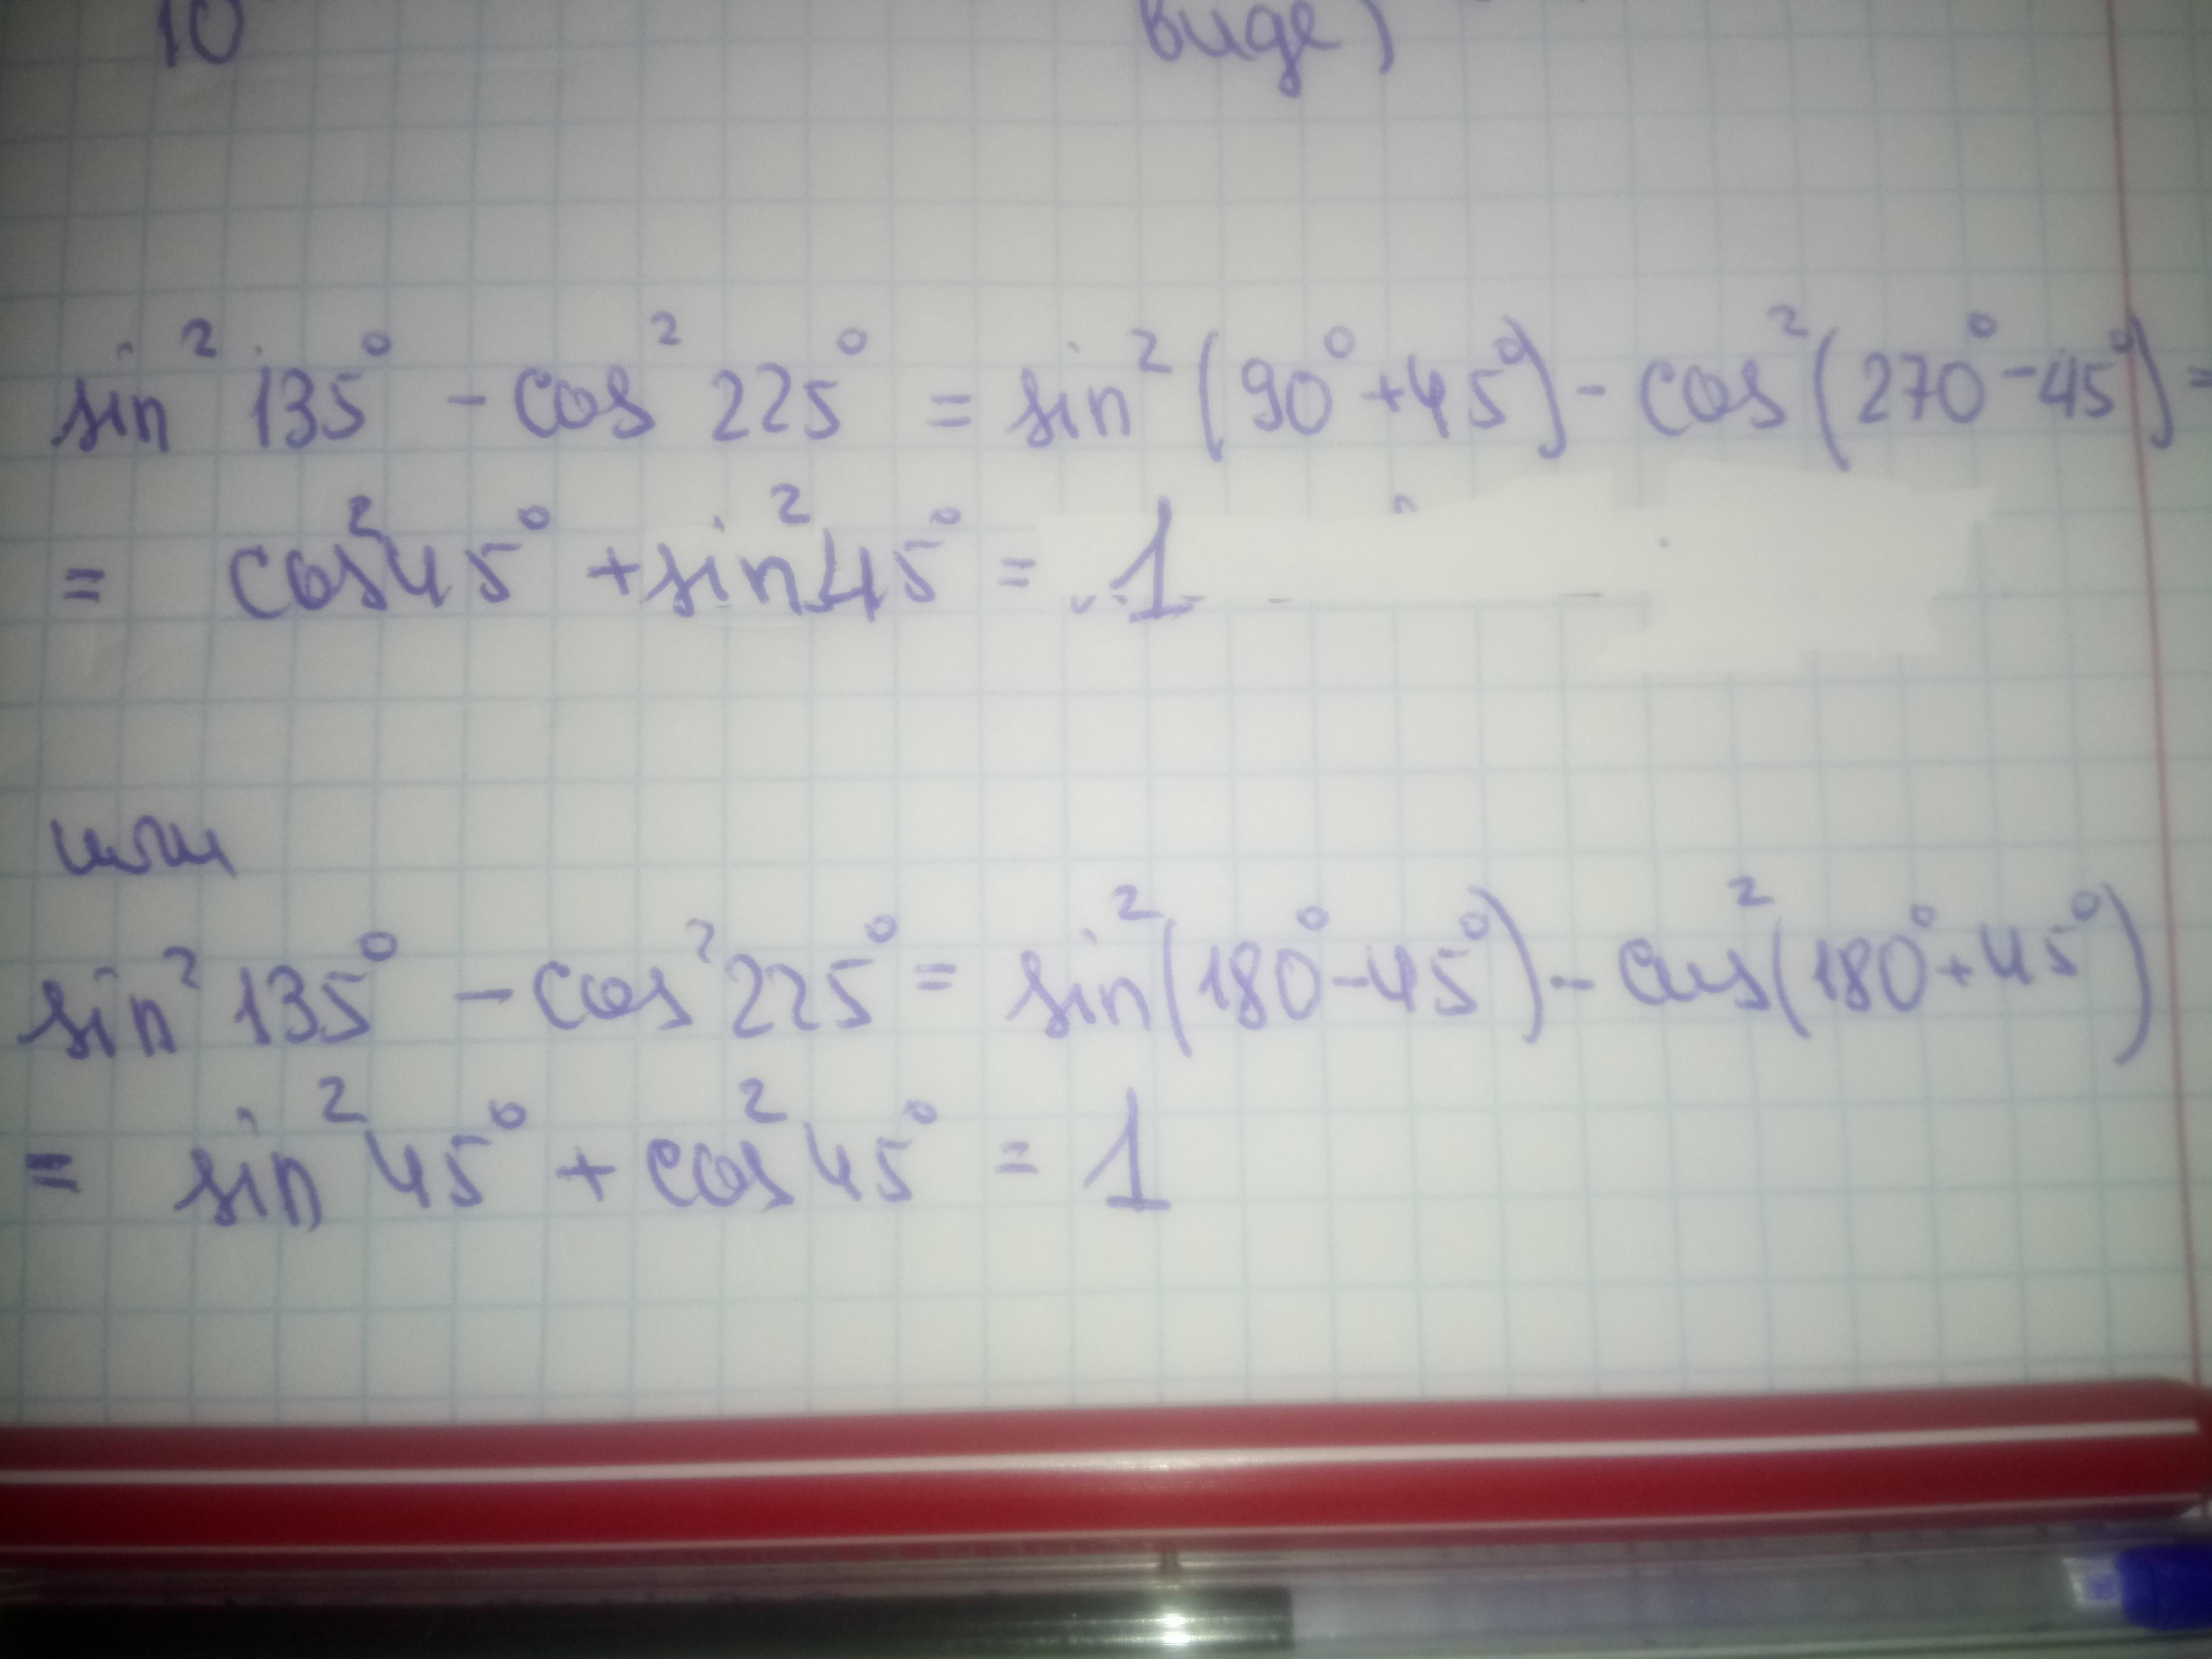 10 виде)
sin² 135° - cos² 225° = sin² (90° + 45°) - cos² (270° - 45°) =
= cos² 45° + sin² 45° = 1
или
sin² 135° - cos² 225° = sin² (180° - 45°) - cos² (180° + 45°)
= sin² 45° + cos² 45° = 1